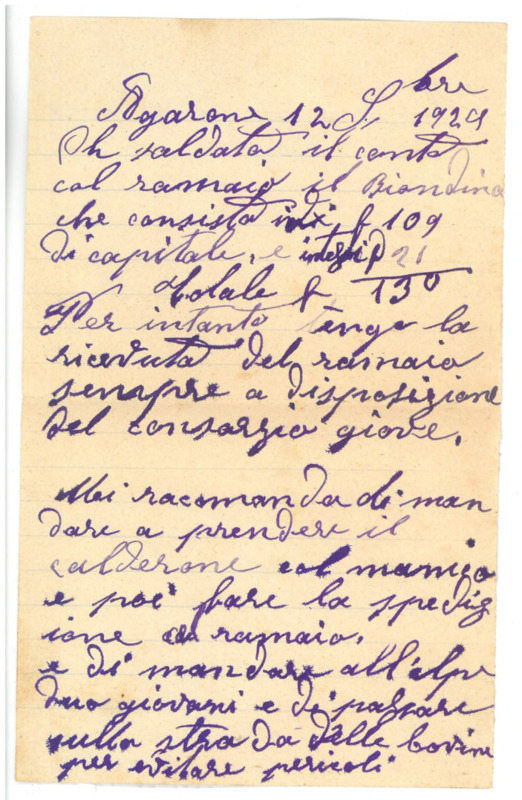 Agarone 12 S.bre 1929
Oh saldata il conto
col ramaio il Biondina
che consista in di f 109
di capitale, e f 21
Totale f. 130
Per intanto tengo la
riceduta del ramaio
sempre a disposizione
del consorzio giove.
Mi racomanda di man
dare a prendere il
calderone col manigo
e poi fare la spediz
ione al ramaio.
e di mandare all'alpe
duo giovani e di passare
sulla strada delle bovine
per evitare pericoli